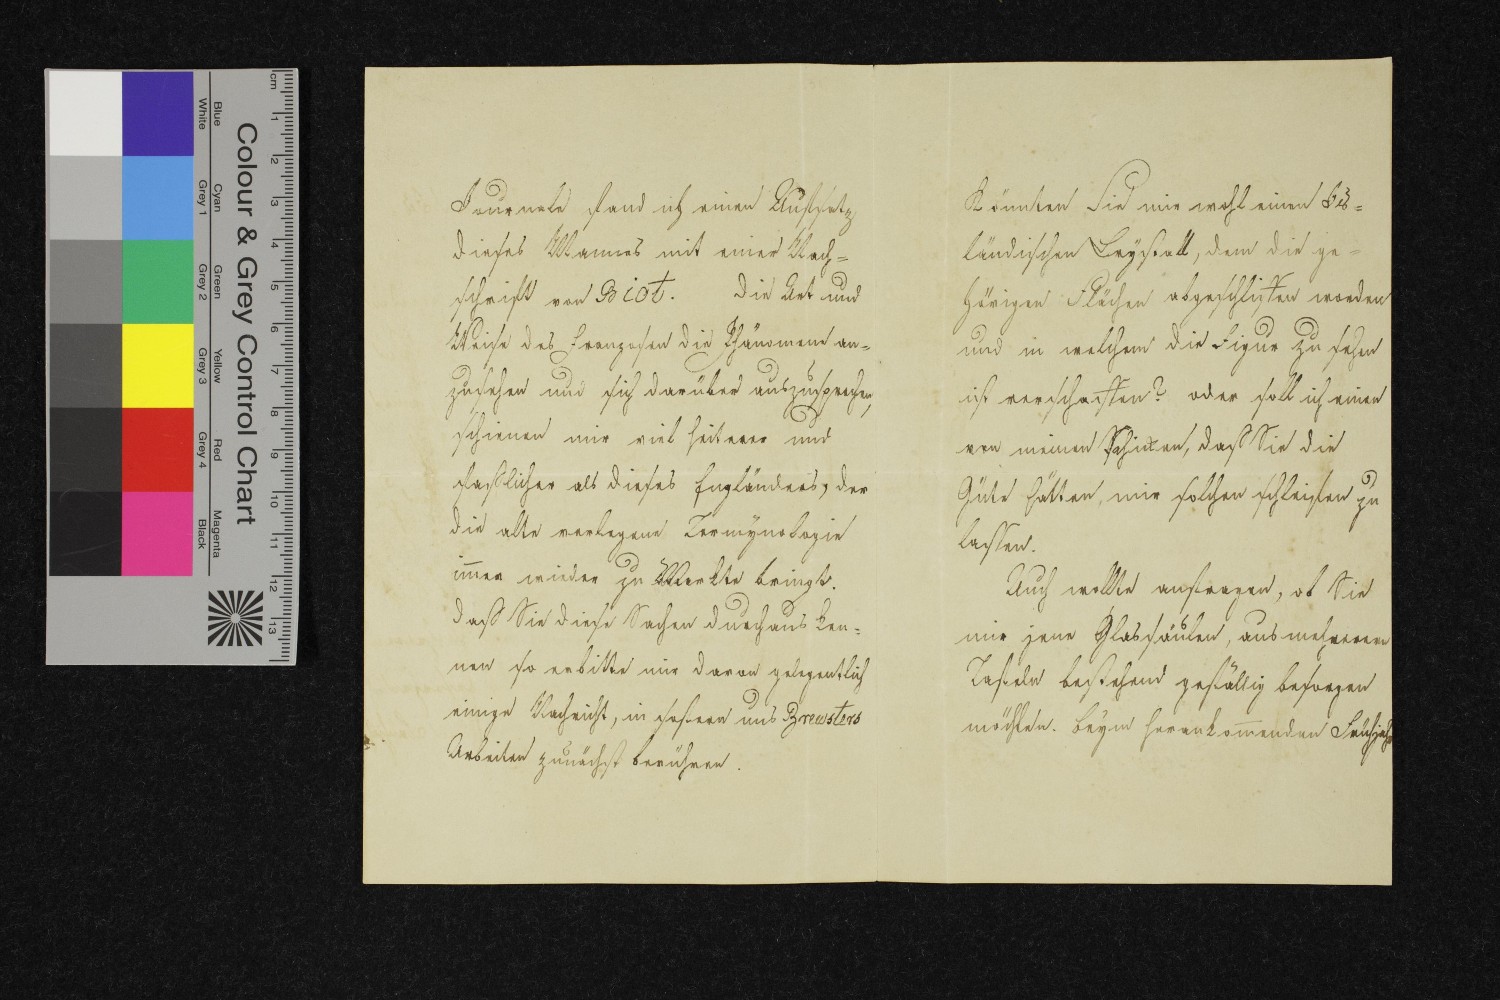 Journale fand ich einen Aufsatz
dieses Mannes mit einer Nach=
schrift von Biot. Die Art und
Weise des Franzosen die Phänomene an=
zusehen und sich darüber auszusprechen,
schienen mir viel heiterer und
fasslicher als dieses Engländers, der
die alte verlegene Termynologie
immer wieder zu Markte bringt.
Daß Sie diese Sachen durchaus ken=
nen so erbitte mir davon gelegentlich
einige Nachricht, in sofern uns Brewsters
Arbeiten zunächst berühren.
Könnten Sie mir wohl einen Is=
ländischen Crystall, dem die ge=
hörigen Flächen abgeschliffen worden
und in welchem die Figur zu sehen
ist verschaffen? oder soll ich einen
von meinen schicken, daß Sie die
Güte hätten, mir solchen schleifen zu
lassen.
Auch wollte anfragen, ob Sie
mir jene Glassäulen, aus mehreren
Tafeln bestehend gefällig besorgen
möchten. Beym herankommenden Frühjahr
Colour & Grey Control Chart
Blue
White
Cyan
Grey 1
Green
Grey 2
Yellow
Grey 3
Red
Grey 4
Magenta
Black
cm
1
2
3
4
5
6
7
8
9
10
11
12
13